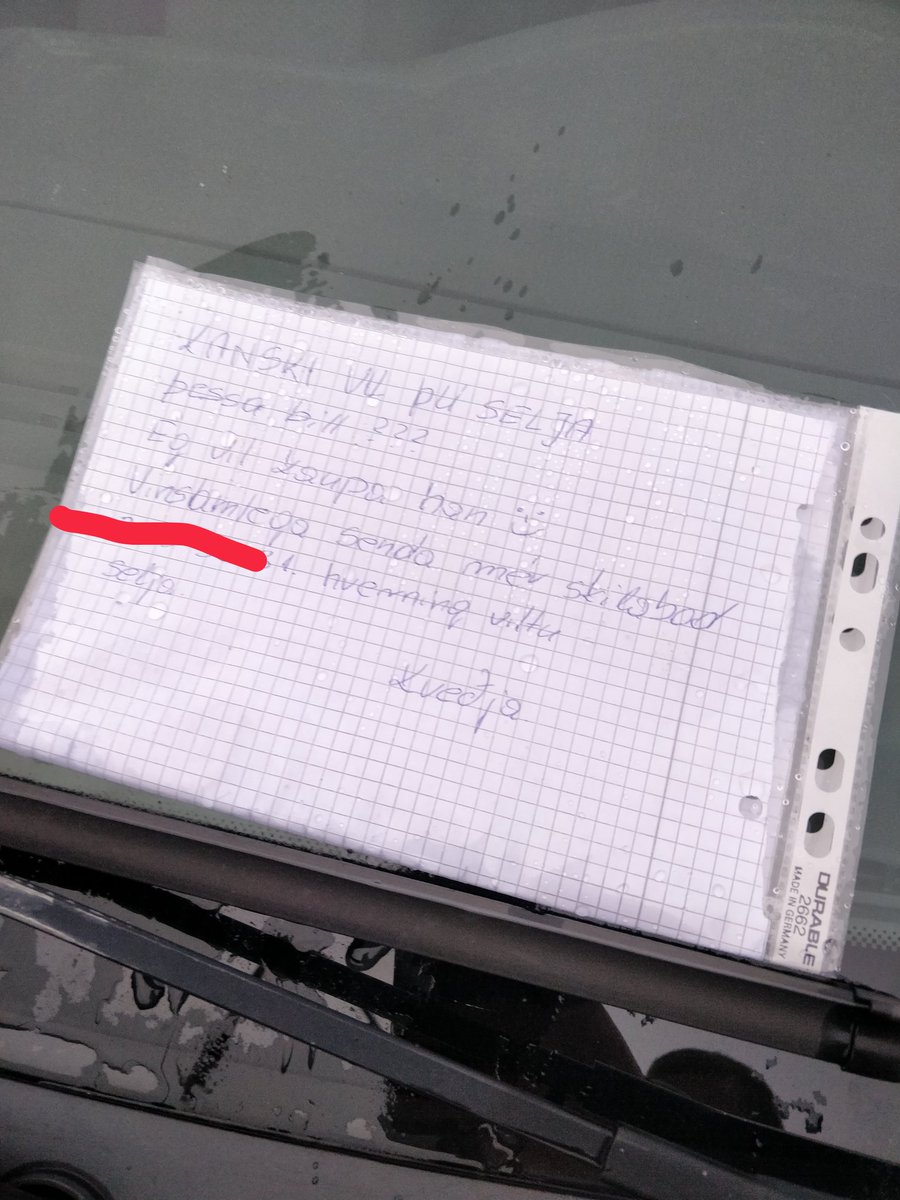 KANSKI VIL þú SELJA
þessa bill ???
Eg vil kaupa han :)
Vinsamlega senda mér skilabod
hverning viltu
selja.
Kvedja
DURABLE
2662
MADE IN GERMANY